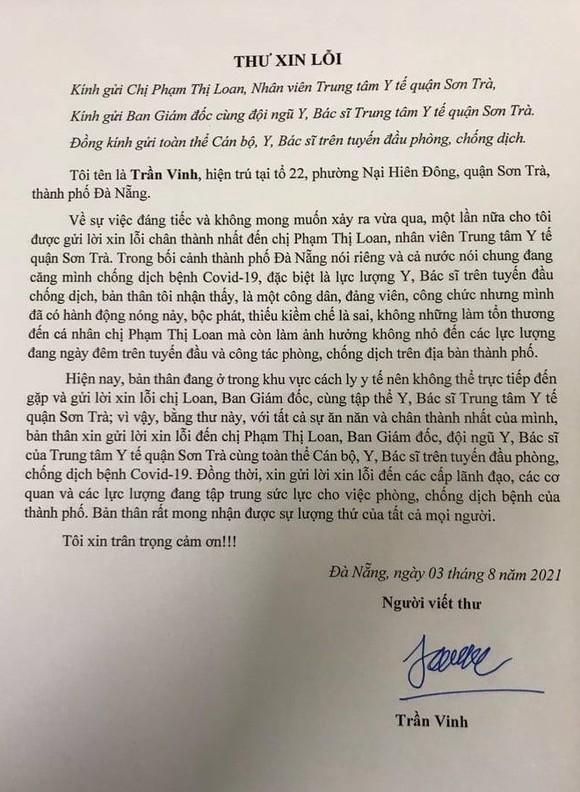 THƯ XIN LỖI
Kính gửi Chị Phạm Thị Loan, Nhân viên Trung tâm Y tế quận Sơn Trà,
Kính gửi Ban Giám đốc cùng đội ngũ Y, Bác sĩ Trung tâm Y tế quận Sơn Trà.
Đồng kính gửi toàn thể Cán bộ, Y, Bác sĩ trên tuyến đầu phòng, chống dịch.
Tôi tên là Trần Vinh, hiện trú tại tổ 22, phường Nại Hiên Đông, quận Sơn Trà,
thành phố Đà Nẵng.
Về sự việc đáng tiếc và không mong muốn xảy ra vừa qua, một lần nữa cho tôi
được gửi lời xin lỗi chân thành nhất đến chị Phạm Thị Loan, nhân viên Trung tâm Y tế
quận Sơn Trà. Trong bối cảnh thành phố Đà Nẵng nói riêng và cả nước nói chung đang
căng mình chống dịch bệnh Covid-19, đặc biệt là lực lượng Y, Bác sĩ trên tuyến đầu
chống dịch, bản thân tôi nhận thấy, là một công dân, đảng viên, công chức nhưng mình
đã có hành động nóng nảy, bộc phát, thiếu kiềm chế là sai, không những làm tổn thương
đến cá nhân chị Phạm Thị Loan mà còn làm ảnh hưởng không nhỏ đến các lực lượng
đang ngày đêm trên tuyến đầu và công tác phòng, chống dịch trên địa bàn thành phố.
Hiện nay, bản thân đang ở trong khu vực cách ly y tế nên không thể trực tiếp đến
gặp và gửi lời xin lỗi chị Loan, Ban Giám đốc, cùng tập thể Y, Bác sĩ Trung tâm Y tế
quận Sơn Trà; vì vậy, bằng thư này, với tất cả sự ăn năn và chân thành nhất của mình,
bản thân xin gửi lời xin lỗi đến chị Phạm Thị Loan, Ban Giám đốc, đội ngũ Y, Bác sĩ
của Trung tâm Y tế quận Sơn Trà cùng toàn thể Cán bộ, Y, Bác sĩ trên tuyến đầu phòng,
chống dịch bệnh Covid-19. Đồng thời, xin gửi lời xin lỗi đến các cấp lãnh đạo, các cơ
quan và các lực lượng đang tập trung sức lực cho việc phòng, chống dịch bệnh của
thành phố. Bản thân rất mong nhận được sự lượng thứ của tất cả mọi người.
Tôi xin trân trọng cảm ơn!!!
Đà Nẵng, ngày 03 tháng 8 năm 2021
Người viết thư
Trần Vinh